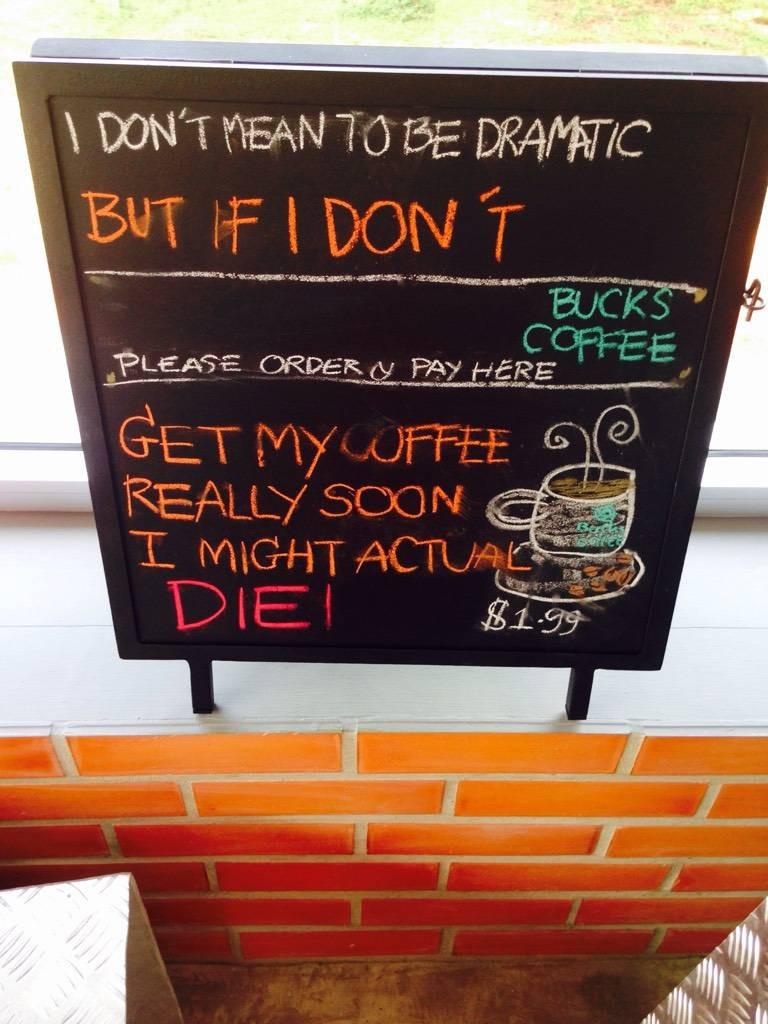 I DON'T MEAN TO BE DRAMATIC
BUT IF I DON'T
BUCKS
COFFEE
PLEASE ORDER & PAY HERE
GET MY COFFEE
REALLY SOON
I MIGHT ACTUAL
DIE!
$1.99